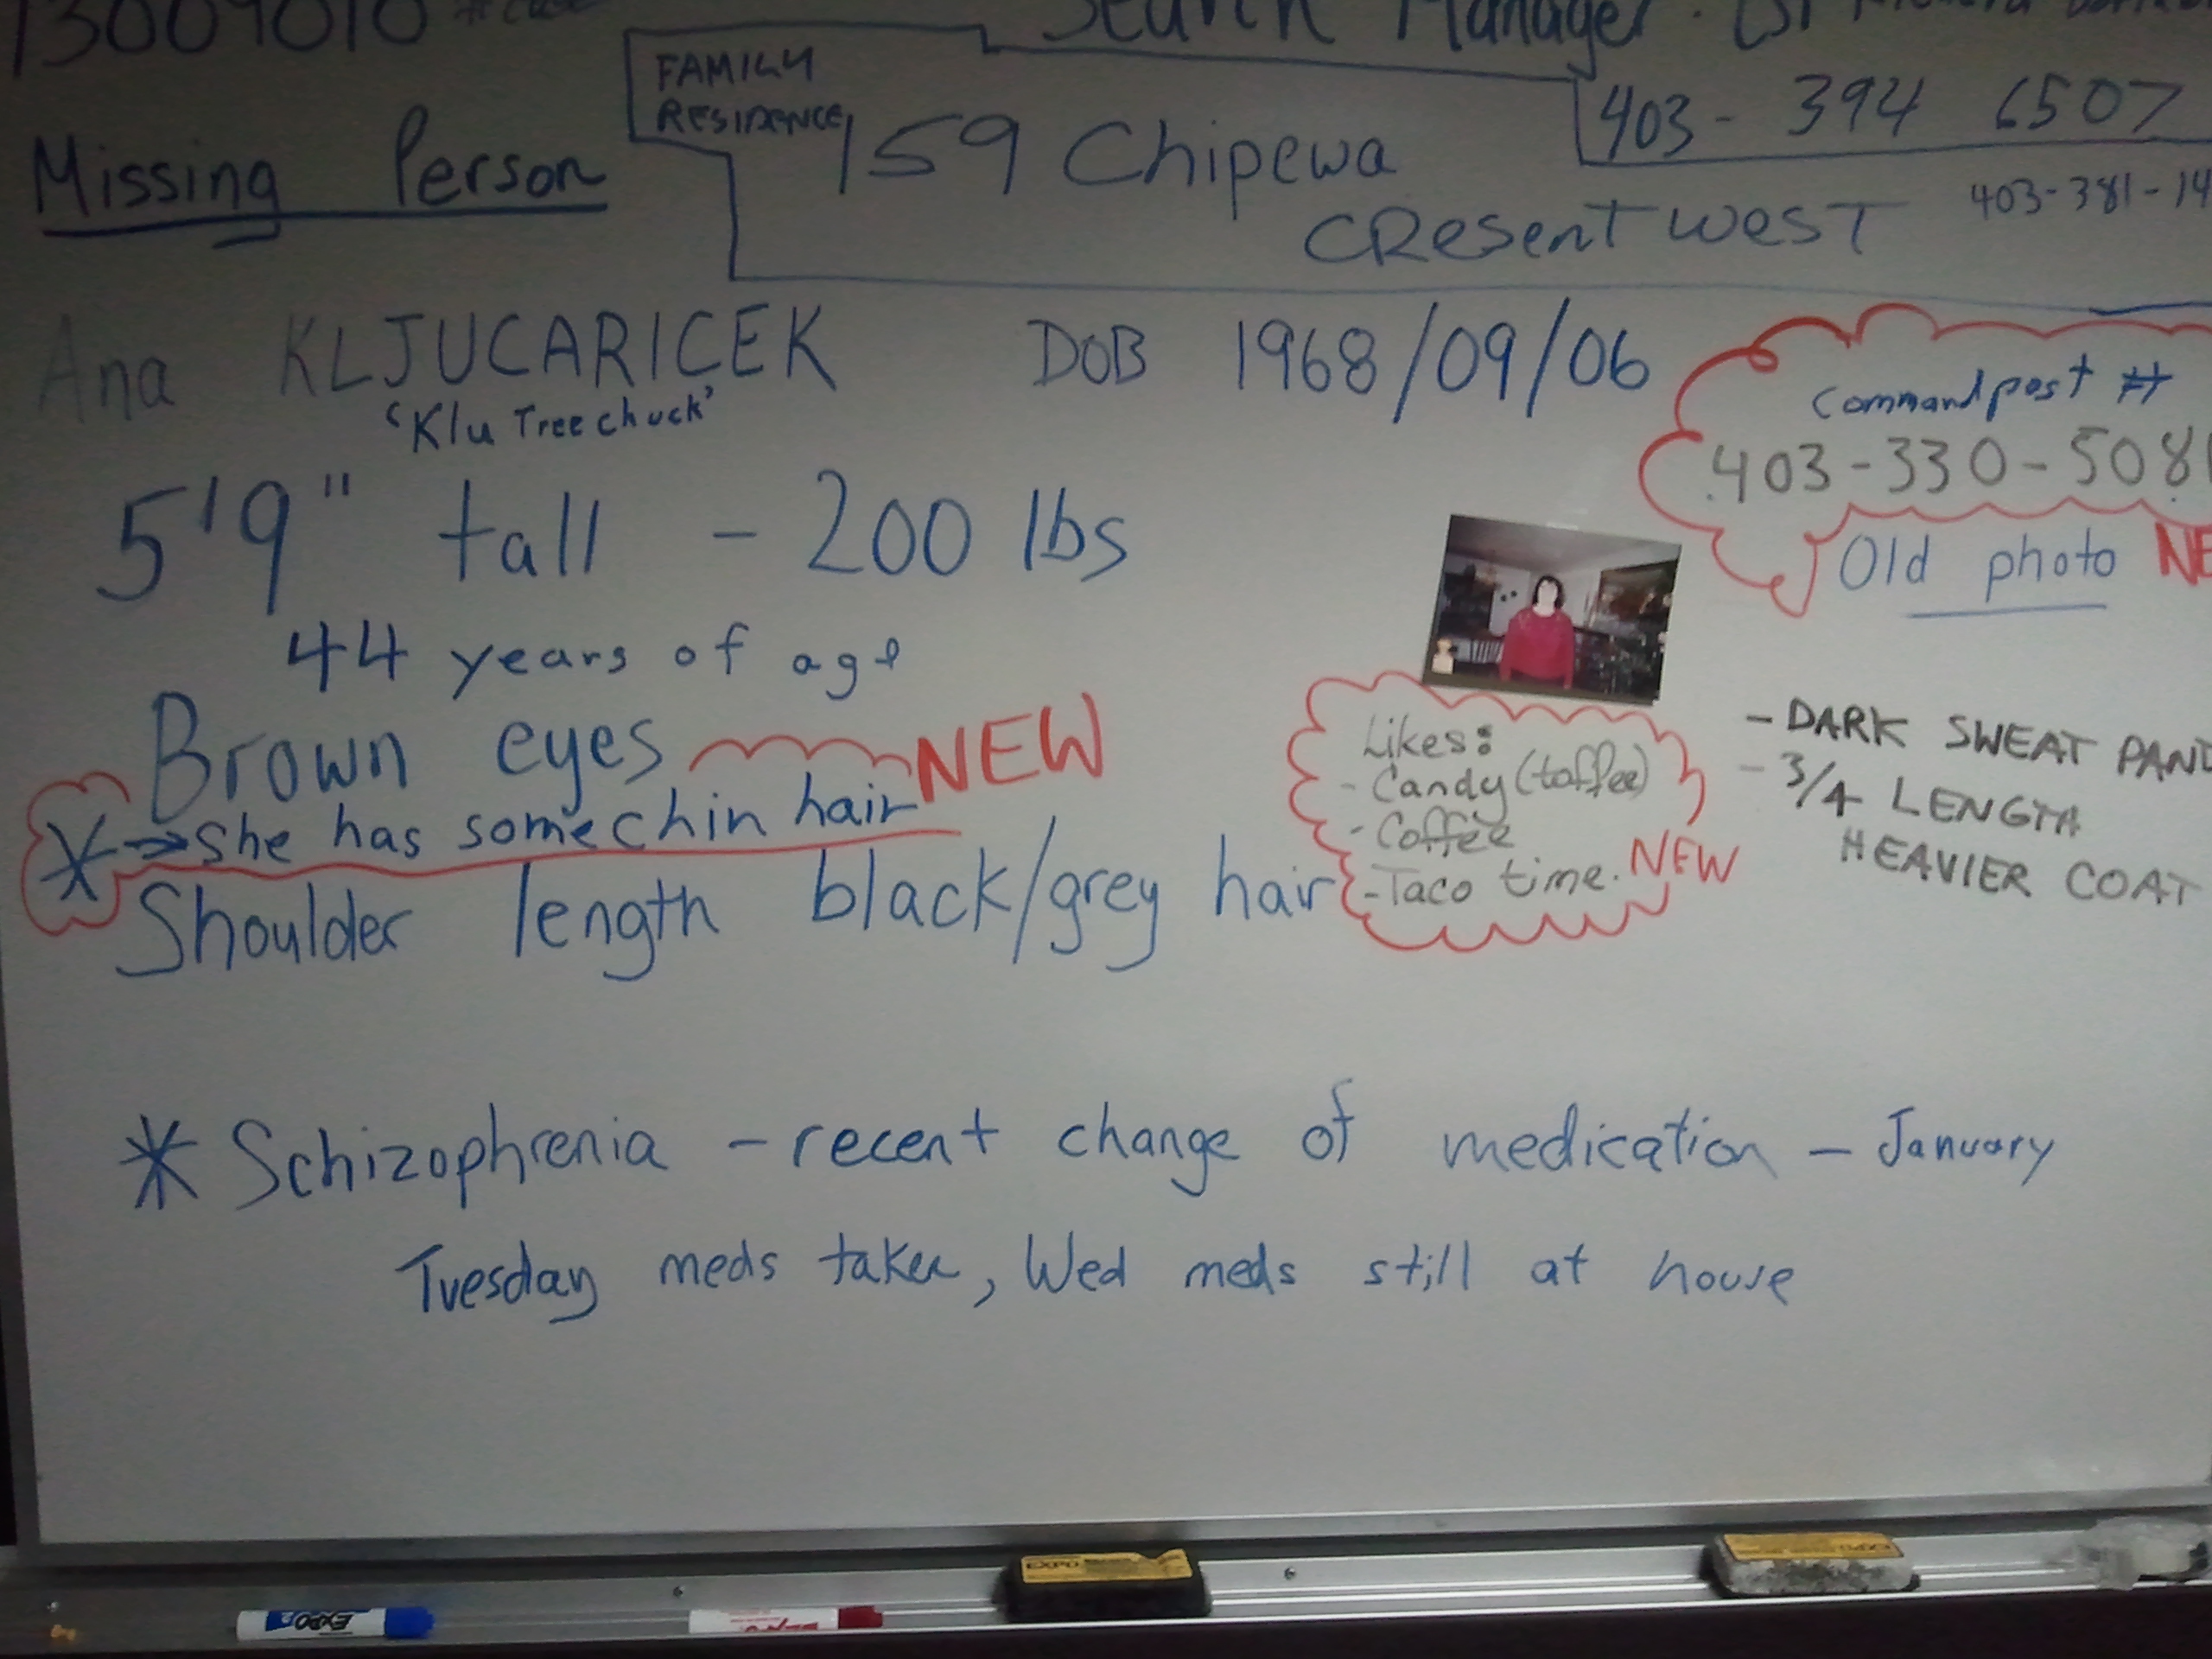 13009010
Search Manager
FAMILY
RESIDENCE
159 Chipewa
CResenT wesT
403- 394 6507
403-381-14
Missing Person
Ana KLJUCARICEK DOB 1968/09/06
'Klu Tree chuck'
Command post #
403-330-508
5'9" tall - 200 lbs
Old photo NE
44 years of age
Brown eyes NEW
* → she has some chin hair
Shoulder length black/grey hair
Likes:
- Candy (toffee)
- Coffee
- Taco time. NEW
- DARK SWEAT PAN
- 3/4 LENGTH
HEAVIER COAT
* Schizophrenia - recent change of medication - January
Tuesday meds taken, Wed meds still at house
EXPO
EXPO
EXPO